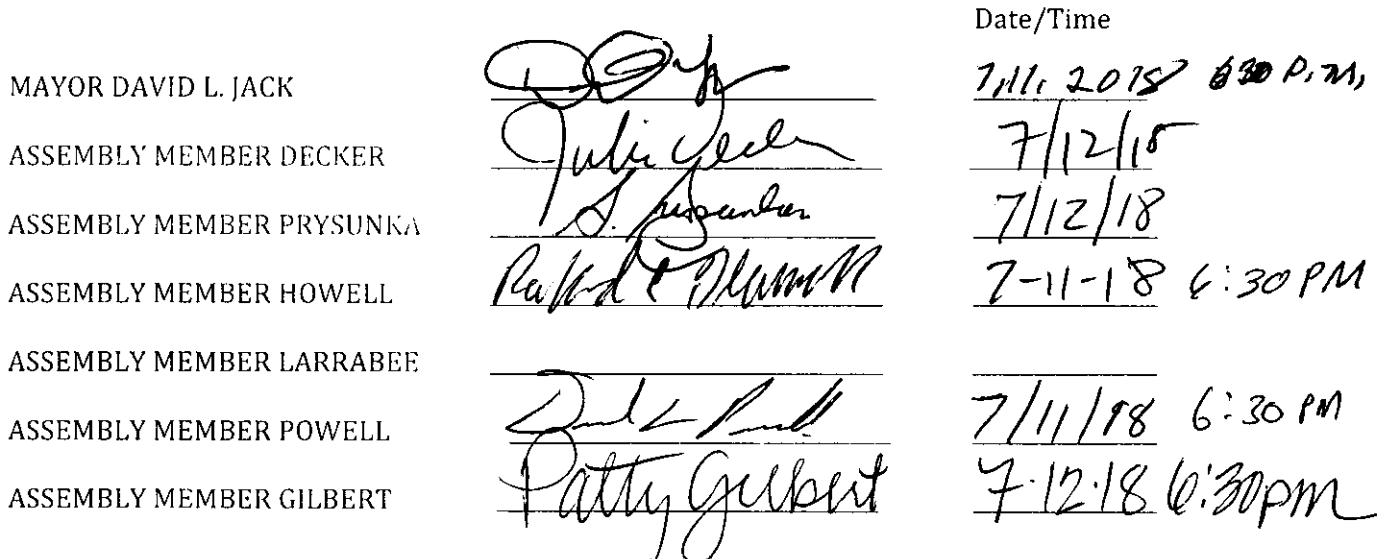 Date/Time
MAYOR DAVID L. JACK 7.11.2018 630 P.M.
ASSEMBLY MEMBER DECKER Julie Decker 7/12/18
ASSEMBLY MEMBER PRYSUNKA S. Prysunka 7/12/18
ASSEMBLY MEMBER HOWELL 7-11-18 6:30 PM
ASSEMBLY MEMBER LARRABEE
ASSEMBLY MEMBER POWELL 7/11/18 6:30 PM
ASSEMBLY MEMBER GILBERT Patty Gilbert 7.12.18 6:30pm